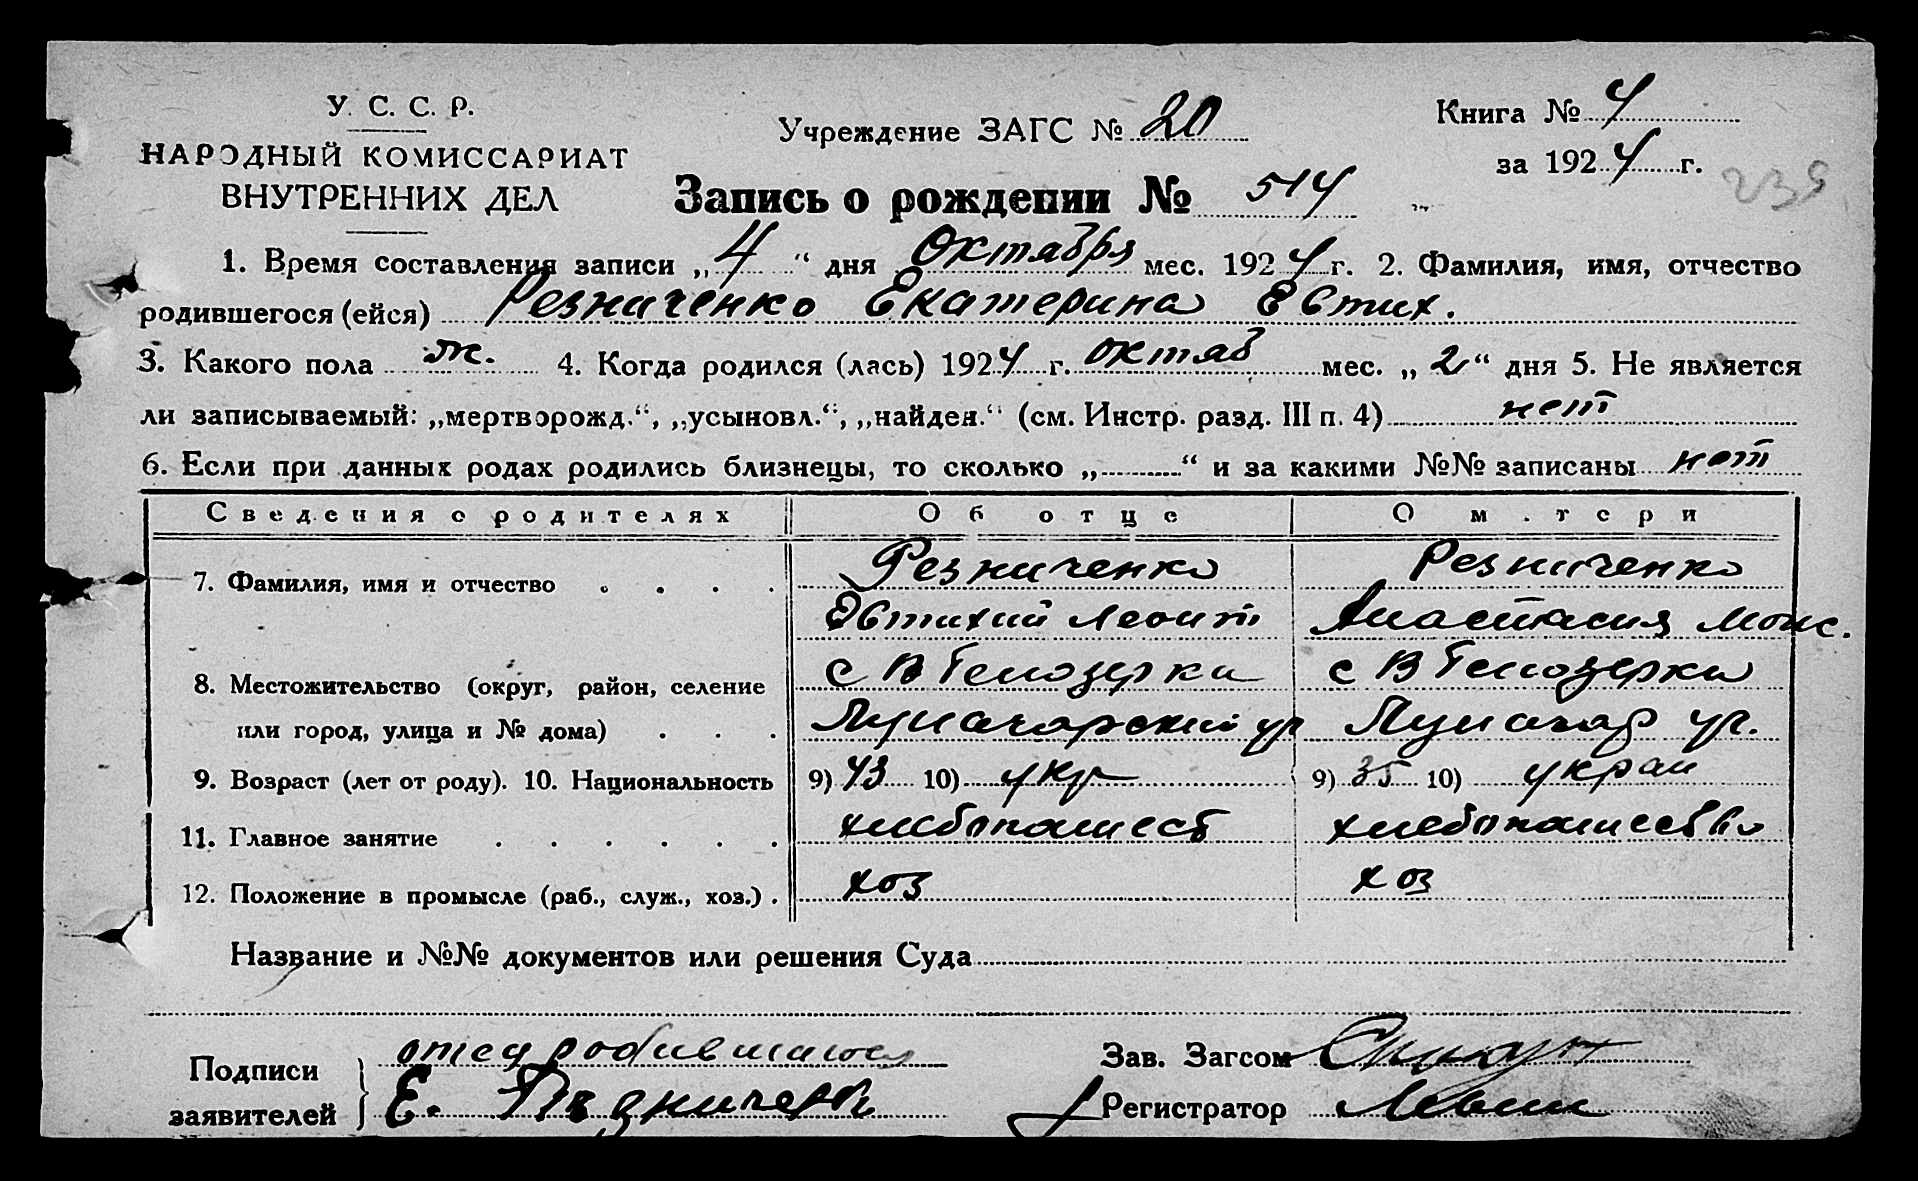 У. С. С. Р.
НАРОДНЫЙ КОМИССАРИАТ
ВНУТРЕННИХ ДЕЛ
Учреждение ЗАГС № 20
Книга № 4
за 1924 г.
239
Запись о рождении № 514
1. Время составления записи „4“ дня Октября мес. 1924 г. 2. Фамилия, имя, отчество
родившегося (ейся) Резниченко Екатерина Евтих.
3. Какого пола ж. 4. Когда родился (лась) 1924 г. октяб мес. „2“ дня 5. Не является
ли записываемый: „мертворожд.“, „усыновл.“, „найден.“ (см. Инстр. разд. III п. 4) нет
6. Если при данных родах родились близнецы, то сколько „ “ и за какими №№ записаны нет
Сведения о родителях Об отце О м.тери
7. Фамилия, имя и отчество . . . . Резниченко Резниченко
Евтихий Леонт Анастасия Моис.
8. Местожительство (округ, район, селение с В Белозерка с В Белозерка
или город, улица и № дома) . . . Луначарский ул Луначар ул.
9. Возраст (лет от роду). 10. Национальность 9) 43 10) укр 9) 35 10) украи
11. Главное занятие . . . . . . хлебопашеств хлебопашество
12. Положение в промысле (раб., служ., хоз.) . хоз хоз
Название и №№ документов или решения Суда
Подписи заявителей } отец родившагося
Е. Резниченко
Зав. Загсом
Регистратор Левин